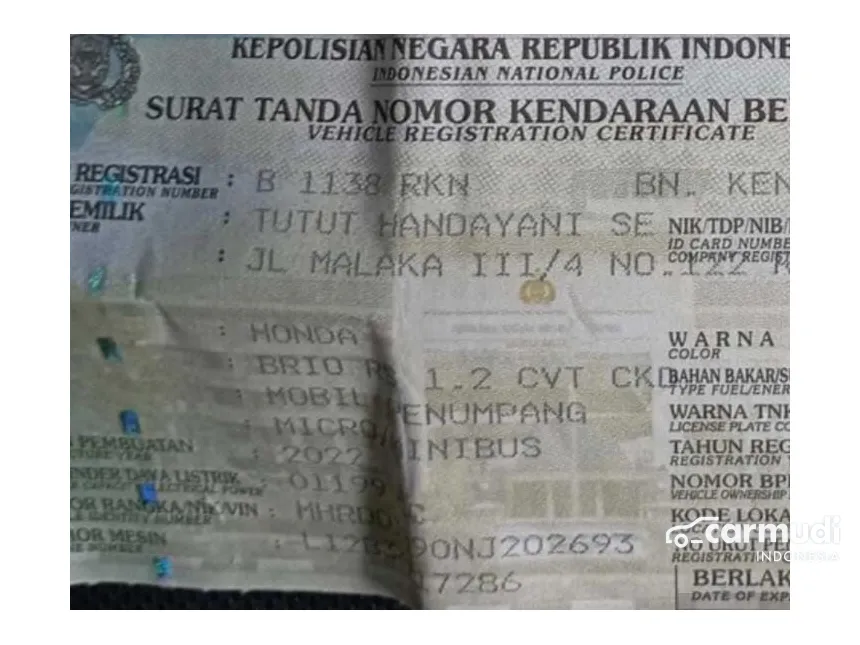 KEPOLISIAN NEGARA REPUBLIK INDONE
INDONESIAN NATIONAL POLICE
SURAT TANDA NOMOR KENDARAAN BE
VEHICLE REGISTRATION CERTIFICATE
REGISTRASI : B 1138 RKN BN. KEN
GISTRATION NUMBER
EMILIK : TUTUT HANDAYANI SE NIK/TDP/NIB/
NER ID CARD NUMBE
: JL MALAKA III/4 NO.122 COMPANY REGIST
: HONDA WARNA
COLOR
: BRIO RS 1.2 CVT CKD BAHAN BAKAR/S
TYPE FUEL/ENER
: MOBIL PENUMPANG WARNA TNK
LICENSE PLATE CO
: MICRO/MINIBUS TAHUN REG
REGISTRATION
PEMBUATAN : 2022 NOMOR BP
VEHICLE OWNERSHIP
NDER DAYA LISTRIK : 01199 KODE LOKA
ELECTRICAL POWER
OR RANGKA/NIK/VIN : MHRDD
IDENTITY NUMBER
OR MESIN : NJ202693 NO URUT
NUMBER REGISTRATI
7286 BERLAK
DATE OF EXP
carmudi
INDONESIA